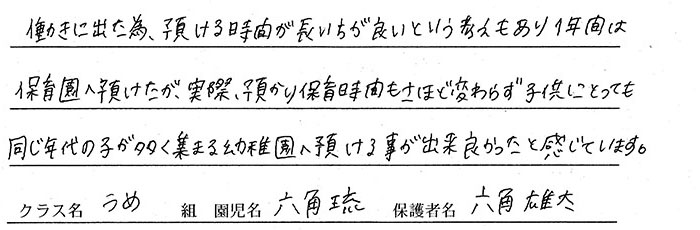 働きに出た為、預ける時間が長いちが良いという考えもあり1年間は
保育園へ預けたが、実際、預かり保育時間もさほど変わらず子供にとっても
同じ年代の子が多く集まる幼稚園へ預ける事が出来良かったと感じています。
クラス名 うめ 組 園児名 六角琉 保護者名 六角雄大